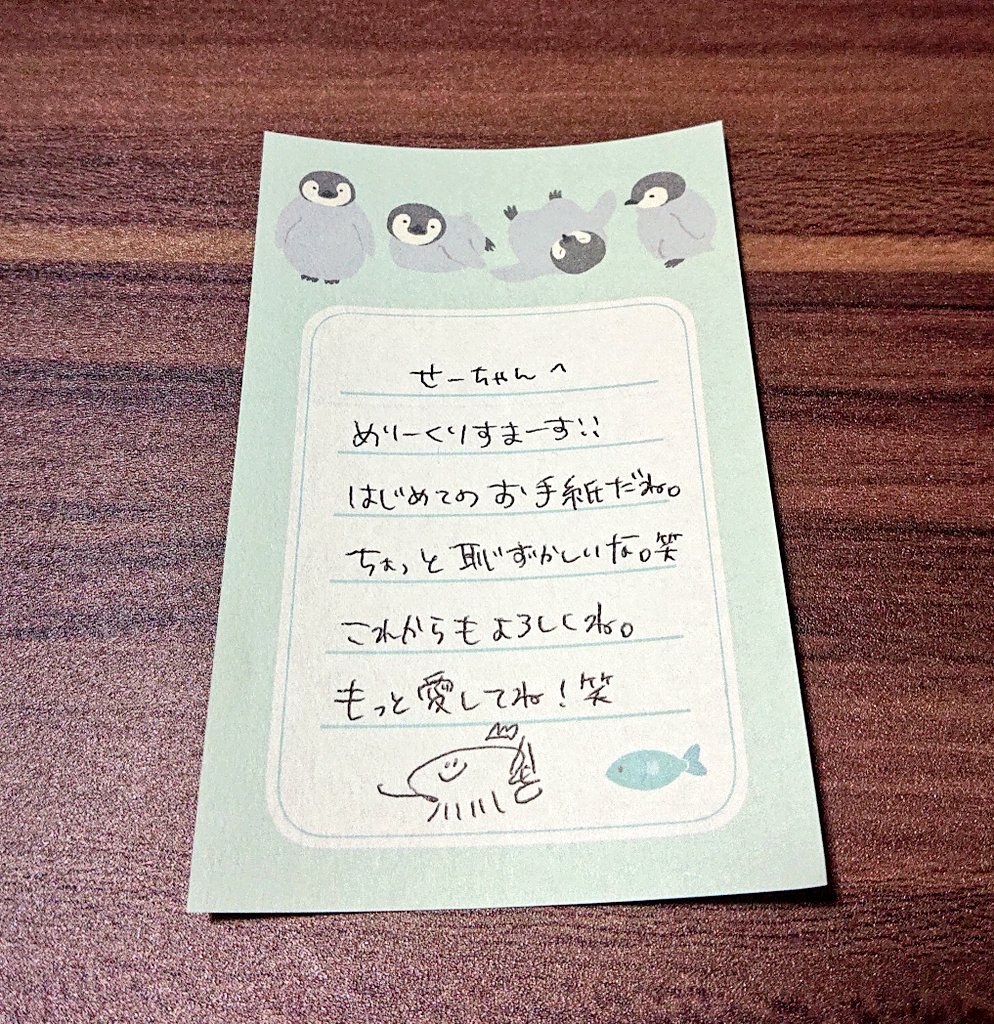 せーちゃんへ
めりーくりすまーす!!
はじめてのお手紙だね。
ちょっと恥ずかしいな。笑
これからもよろしくね。
もっと愛してね!笑